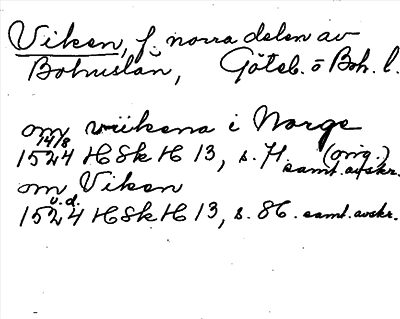 Viken, f. norra delen av
Bohuslän, Göteb. o Boh. l.
om wiikena i Norge
14/8
1524 HSkH 13, s. 71. (orig.)
samt. avskr.
om Viken
u.d.
1524 HSkH 13, s. 86. samt. avskr.